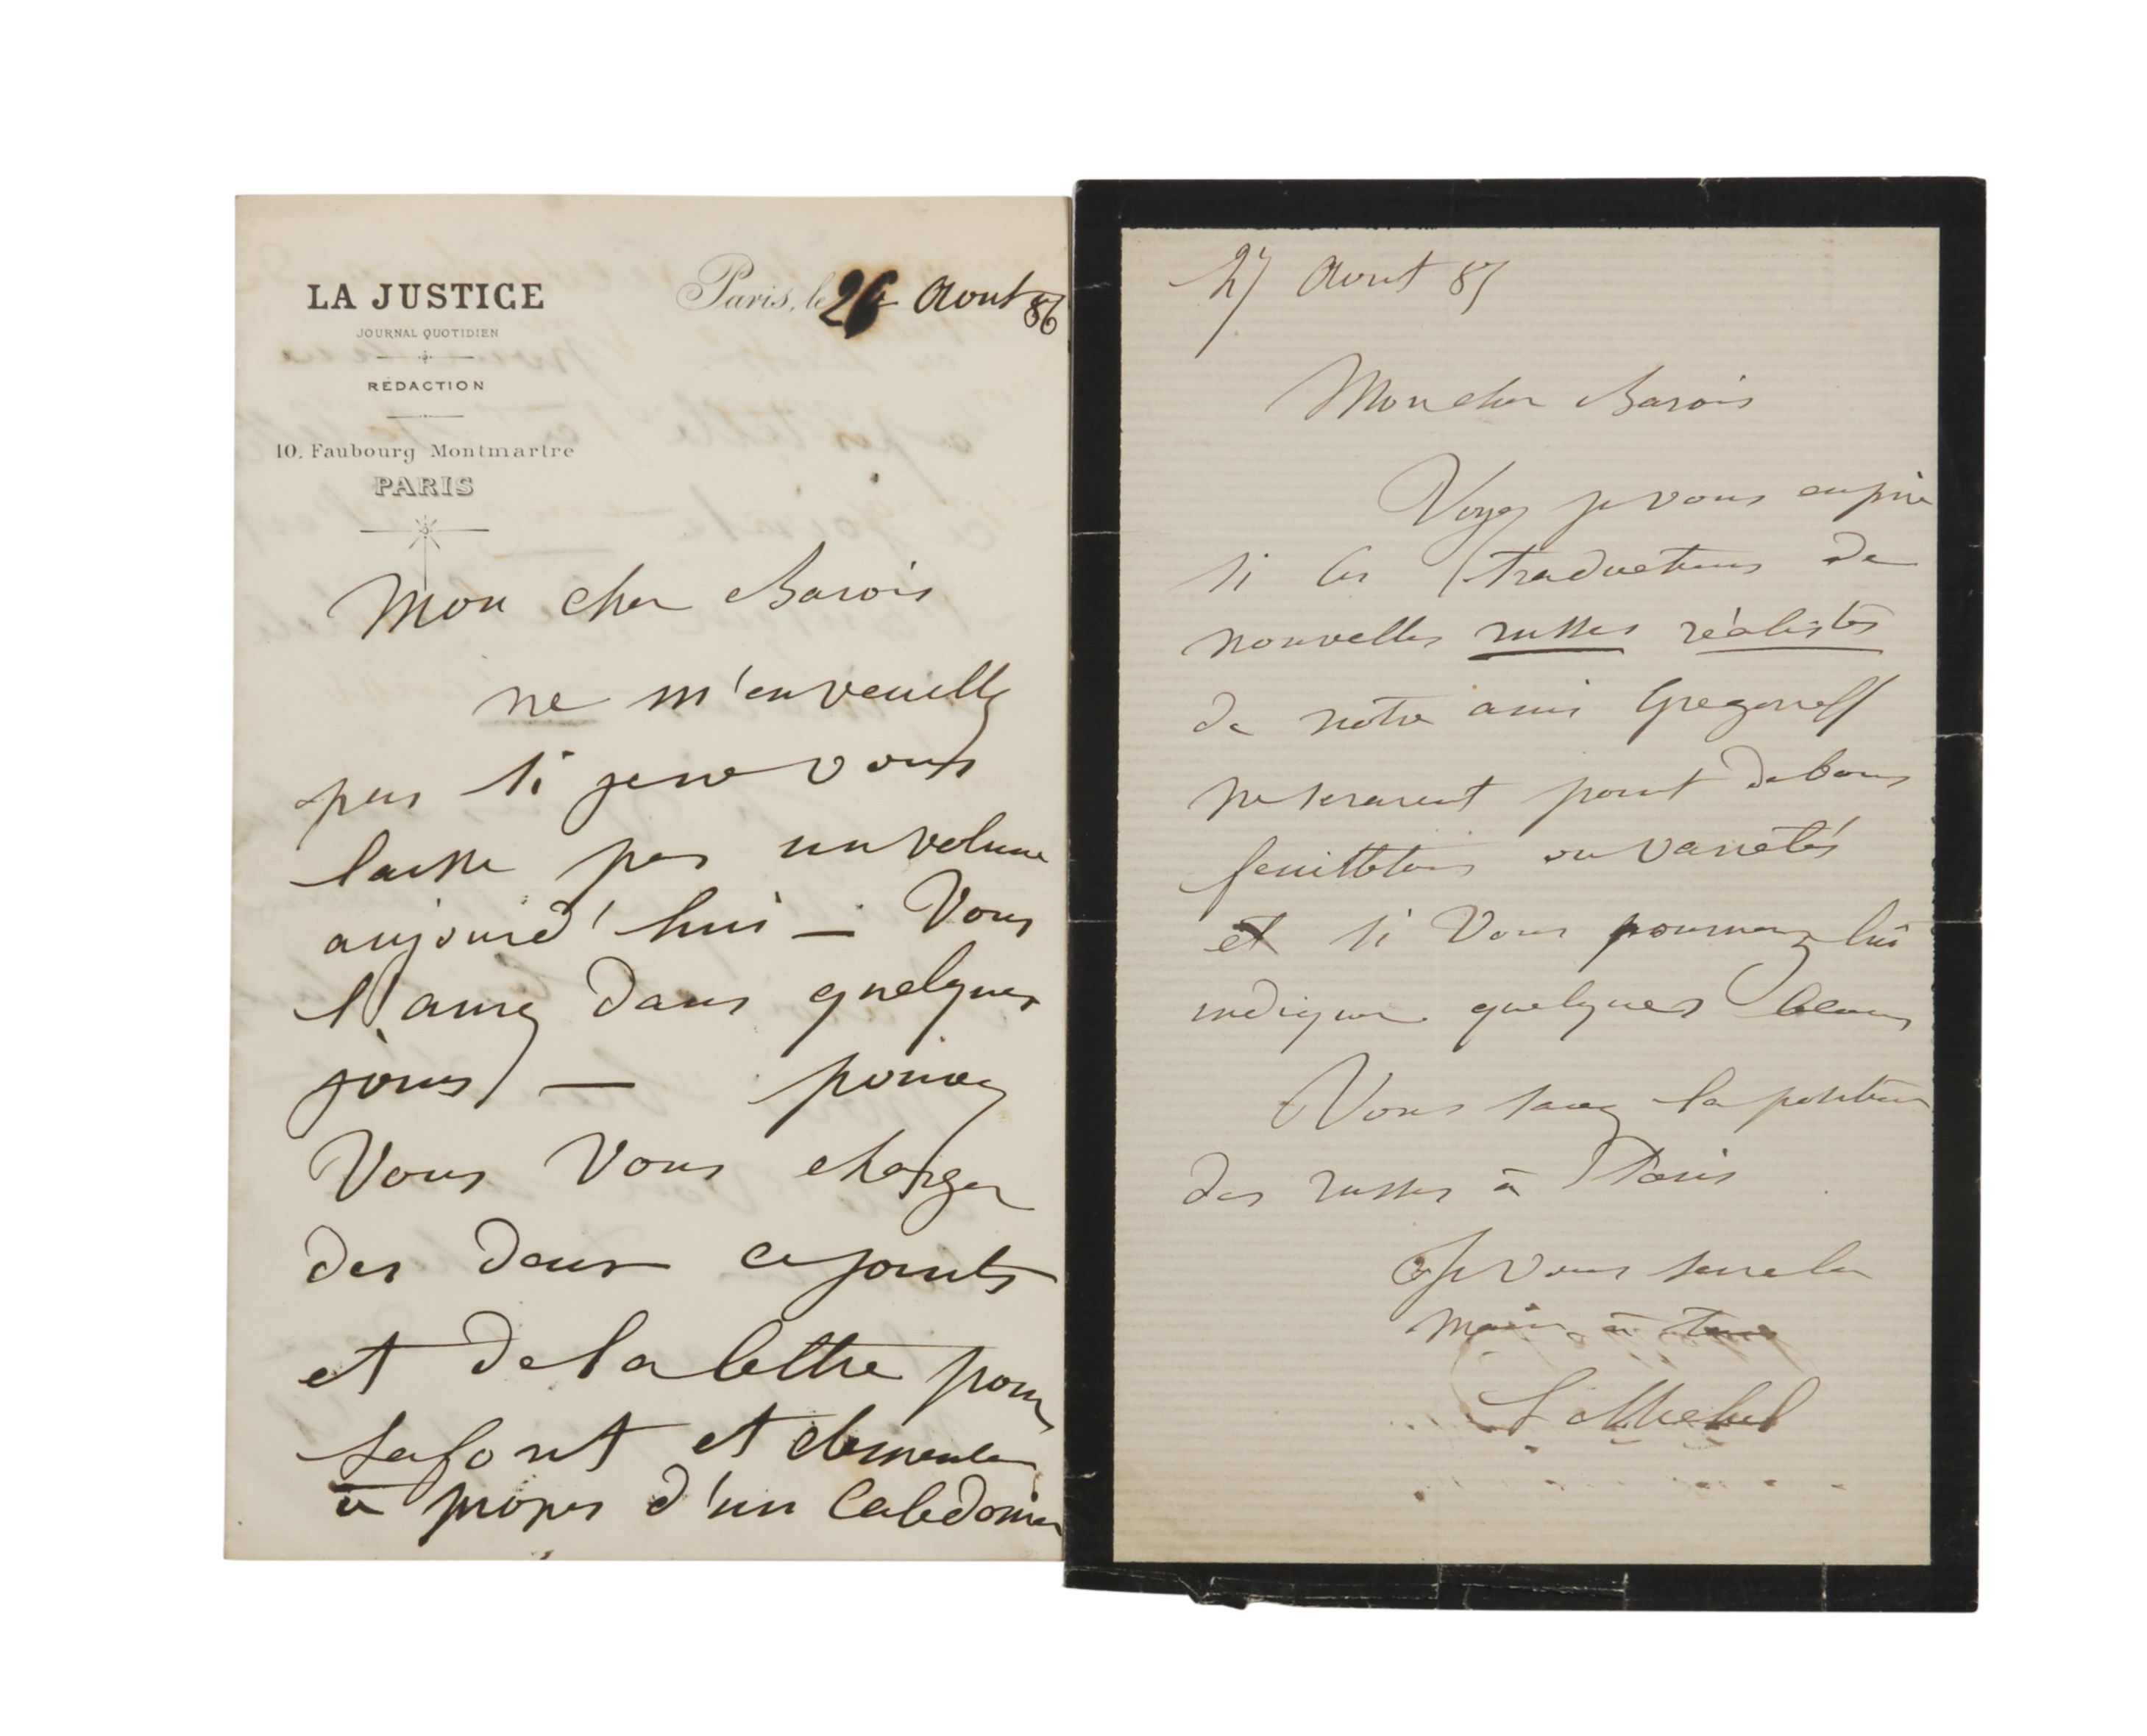 LA JUSTICE
JOURNAL QUOTIDIEN
RÉDACTION
10, Faubourg Montmartre
PARIS
Paris, le 26 Aout 86
Mon cher Barois
ne m'en veuillez
pas si je ne vous
laisse pas un volume
aujourd'hui — Vous
l'aurez dans quelques
jours — pouvez
Vous Vous charger
des deux ci joints
et de la lettre pour
Lafont et
à propos d'un Caledonien
27 Aout 87
Mon cher Barois
Voyez je vous en prie
si les traductions de
nouvelles russes réalistes
de notre ami
ne seraient point de bons
feuilletons ou variétés
et si Vous pourriez lui
indiquer quelques
Vous savez la position
des russes à Paris
Je vous serre la
main à tous
L Michel